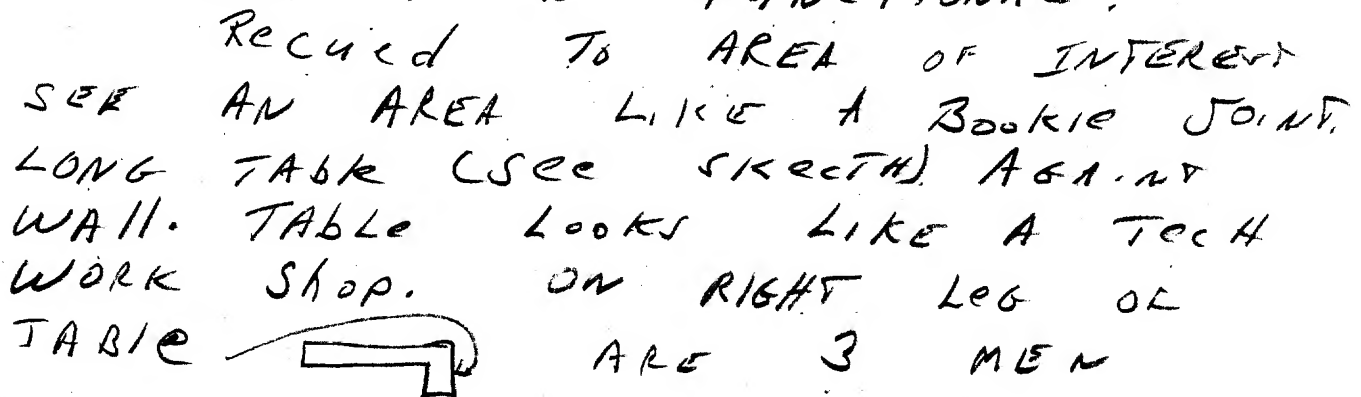 Recued TO AREA OF INTERERT
SEE AN AREA LIKE A BOOKIE JOINT.
LONG TABLE (SEE SKECTH) AGAINT
WALL. TABLE LOOKS LIKE A TECH
WORK SHOP. ON RIGHT LEG OF
TABLE ARE 3 MEN